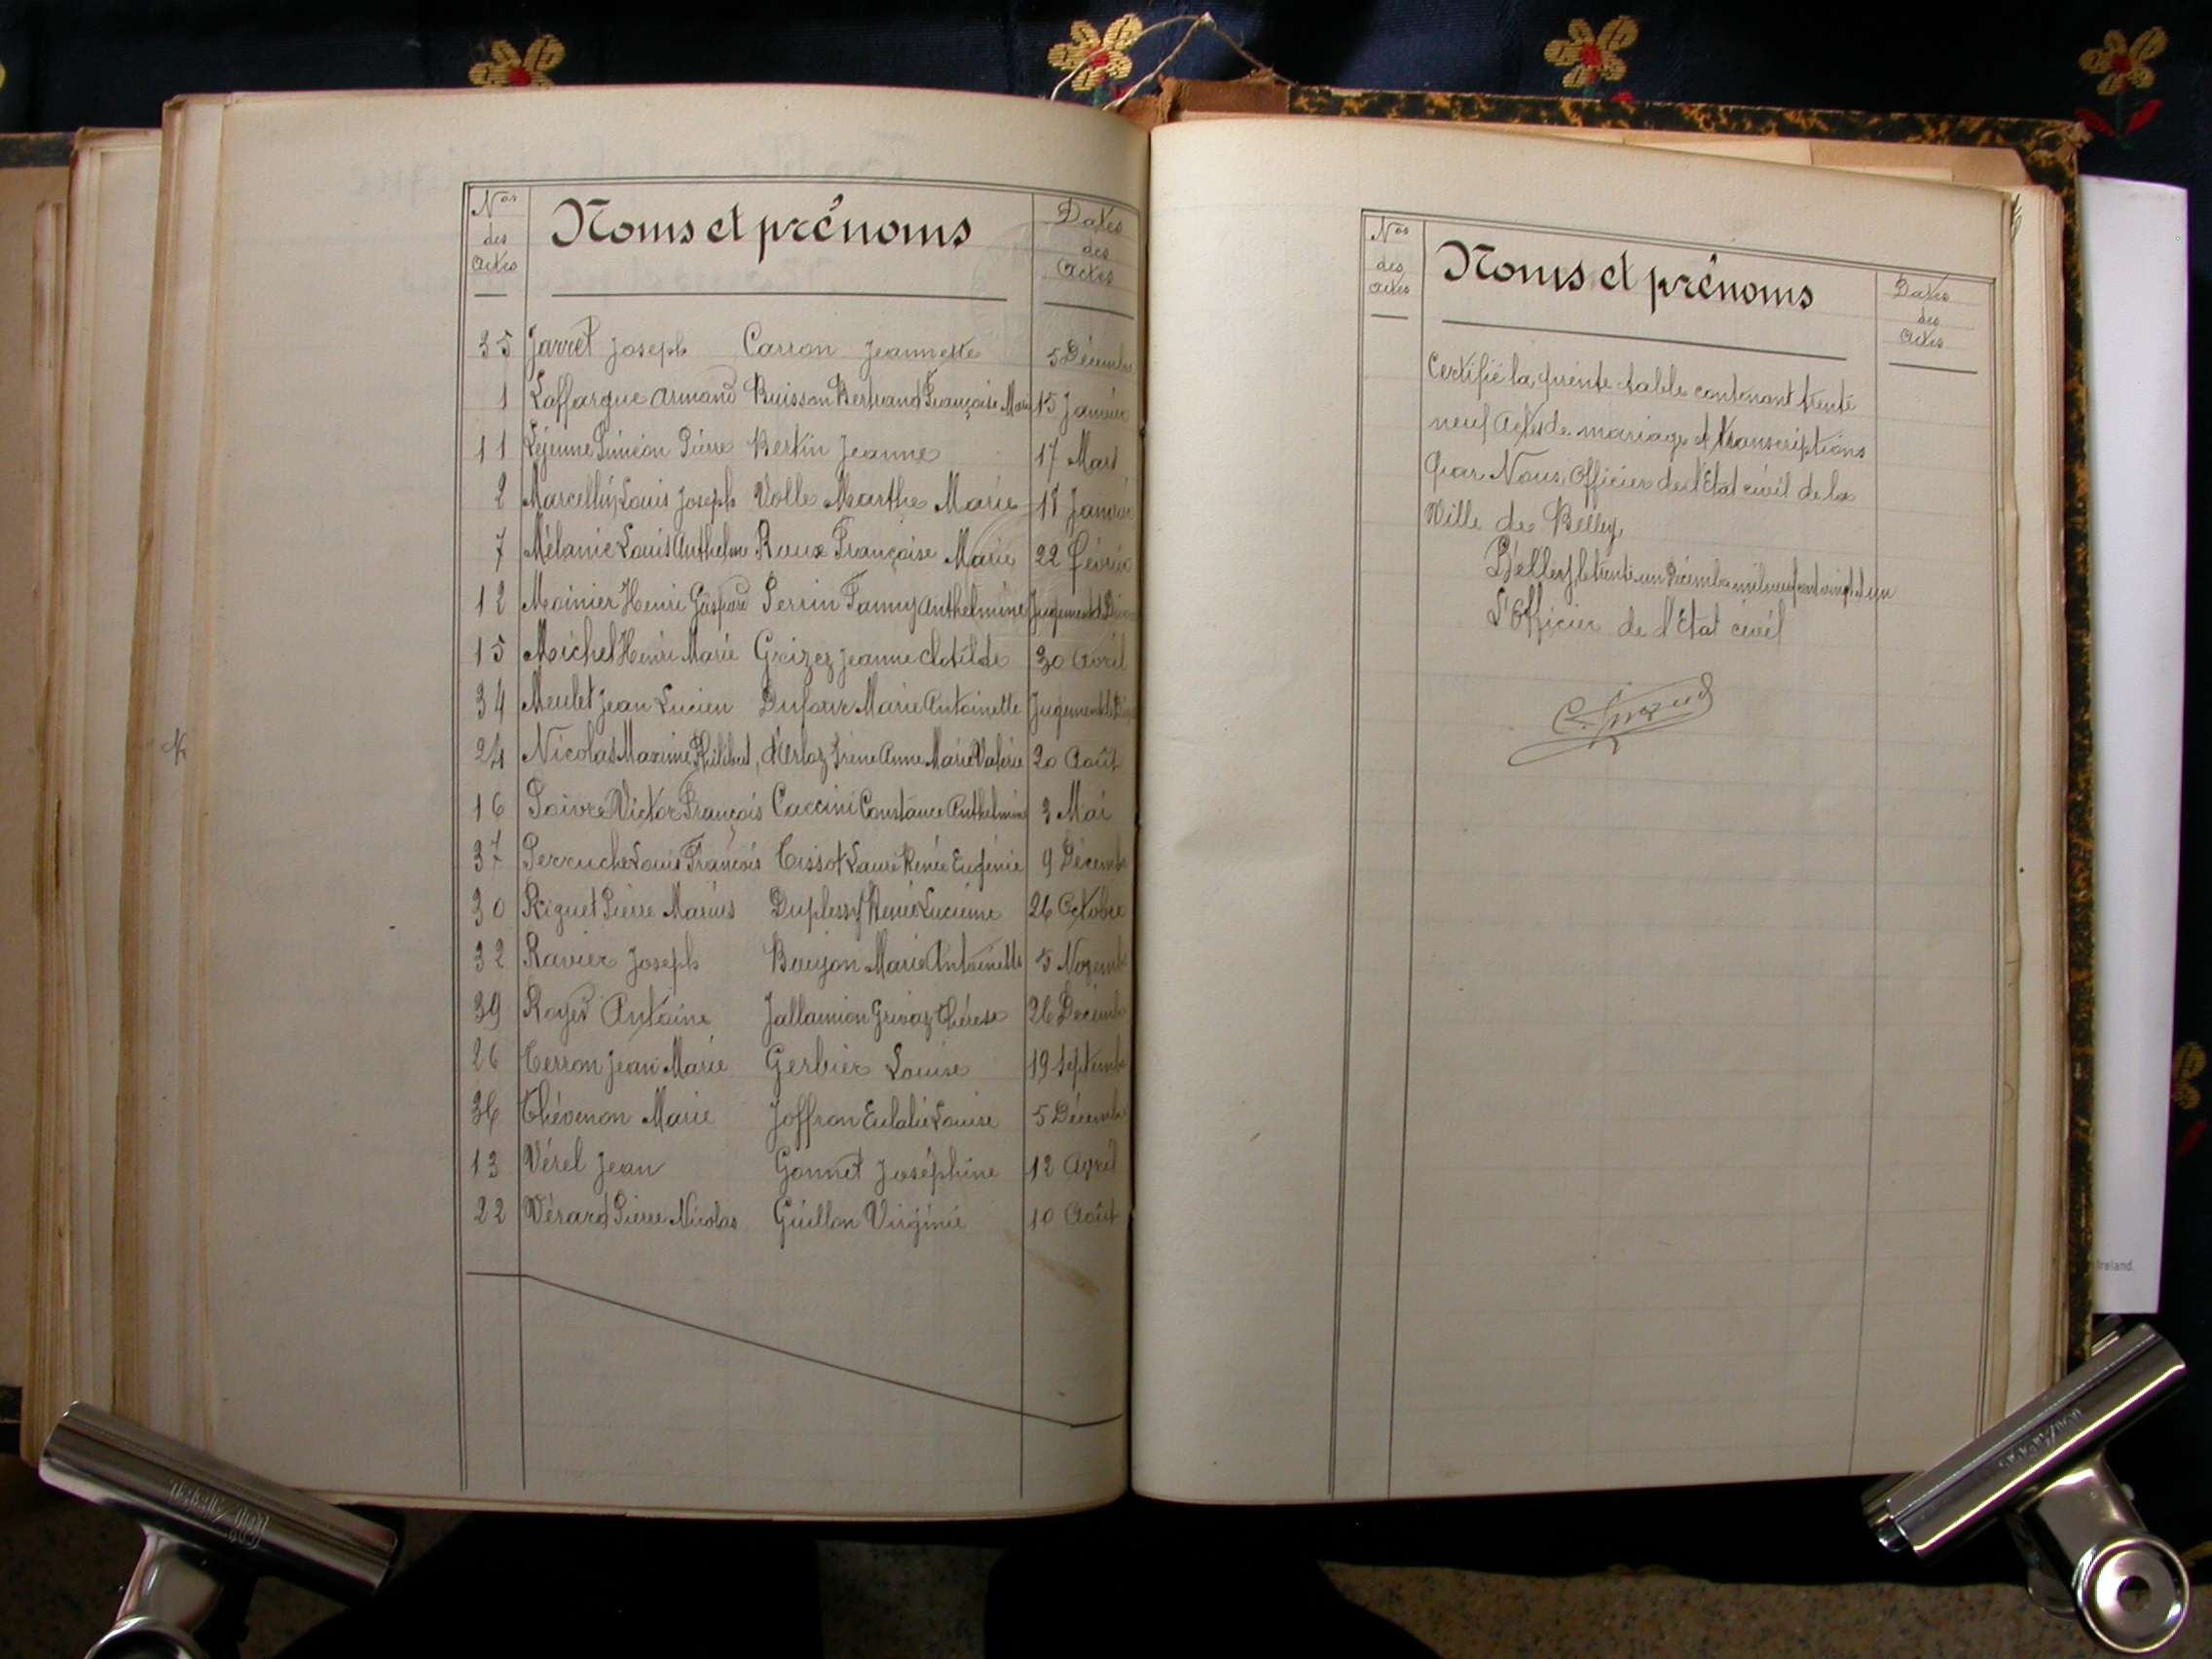 Nos des actes
Noms et prénoms
Dates des Actes
35 Jarret Joseph Carron Jeannette 5 Décembre
1 Laffargue Armand Buisson Bertrand Françoise Marie 15 Janvier
11 Lejeune Siméon Pierre Bertin Jeanne 17 Mars
2 Marcellin Louis Joseph Volle Marthe Marie 18 Janvier
7 Mélanie Louis Anthelme Roux Françoise Marie 22 Février
12 Moinier Henri Gaspard Perrin Fanny Anthelmine Jugement de Divorce
15 Michel Henri Marie Grizez Jeanne Clotilde 30 Avril
34 Meulet Jean Lucien Dufour Marie Antoinette Jugement de
24 Nicolas Maxime Philibert, d'Erloz Irène Anne Marie Valérie 20 Août
16 Poivre Victor François Caccini Constance Anthelmine 3 Mai
37 Perruche Louis François Tissot Laure Renée Eugénie 9 Décemb
30 Riguet Pierre Marius Duplessy Renée Lucienne 26 Octobre
32 Ravier Joseph Boujon Marie Antoinette 5 Novemb
39 Royer Antoine Jallamion Grivaz Thérèse 26 Décemb
26 Terron Jean Marie Gerbier Louise 19 Septemb
36 Thévenon Marie Joffron Eulalie Louise 5 Décemb
13 Vérel Jean Gonnet Joséphine 12 Avril
22 Vérard Pierre Nicolas Guillon Virginie 10 Août
Nos des actes
Noms et prénoms
Dates des Actes
Certifié la présente table contenant trente
neuf actes de mariage et transcriptions
par Nous, Officier de l'Etat civil de la
Ville de Belley
Belley, le trente un Décembre mil neuf cent vingt et un
L'Officier de l'Etat civil
Ireland.